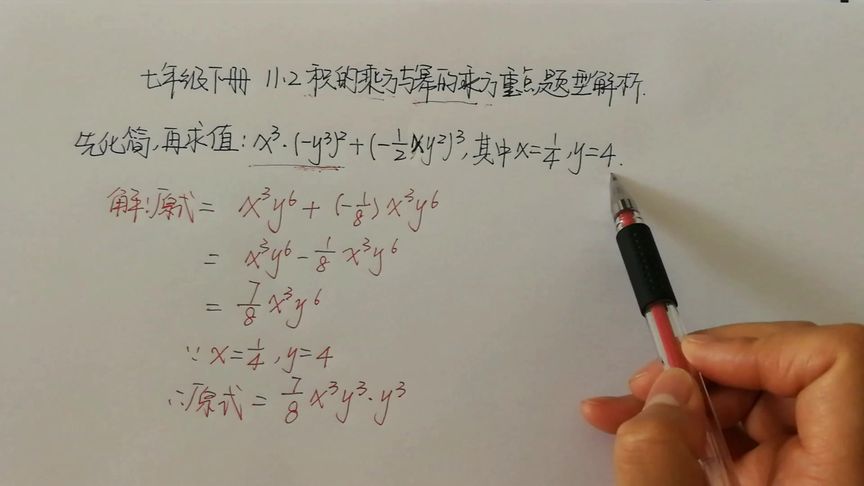 七年级下册 11.2 积的乘方与幂的乘方重点题型解析.
先化简,再求值: x³·(-y³)²+(-1/2xy²)³,其中x=1/4,y=4.
解:原式= x³y⁶+(-1/8)x³y⁶
= x³y⁶-1/8x³y⁶
= 7/8x³y⁶
∵x=1/4,y=4
∴原式=7/8x³y³·y³